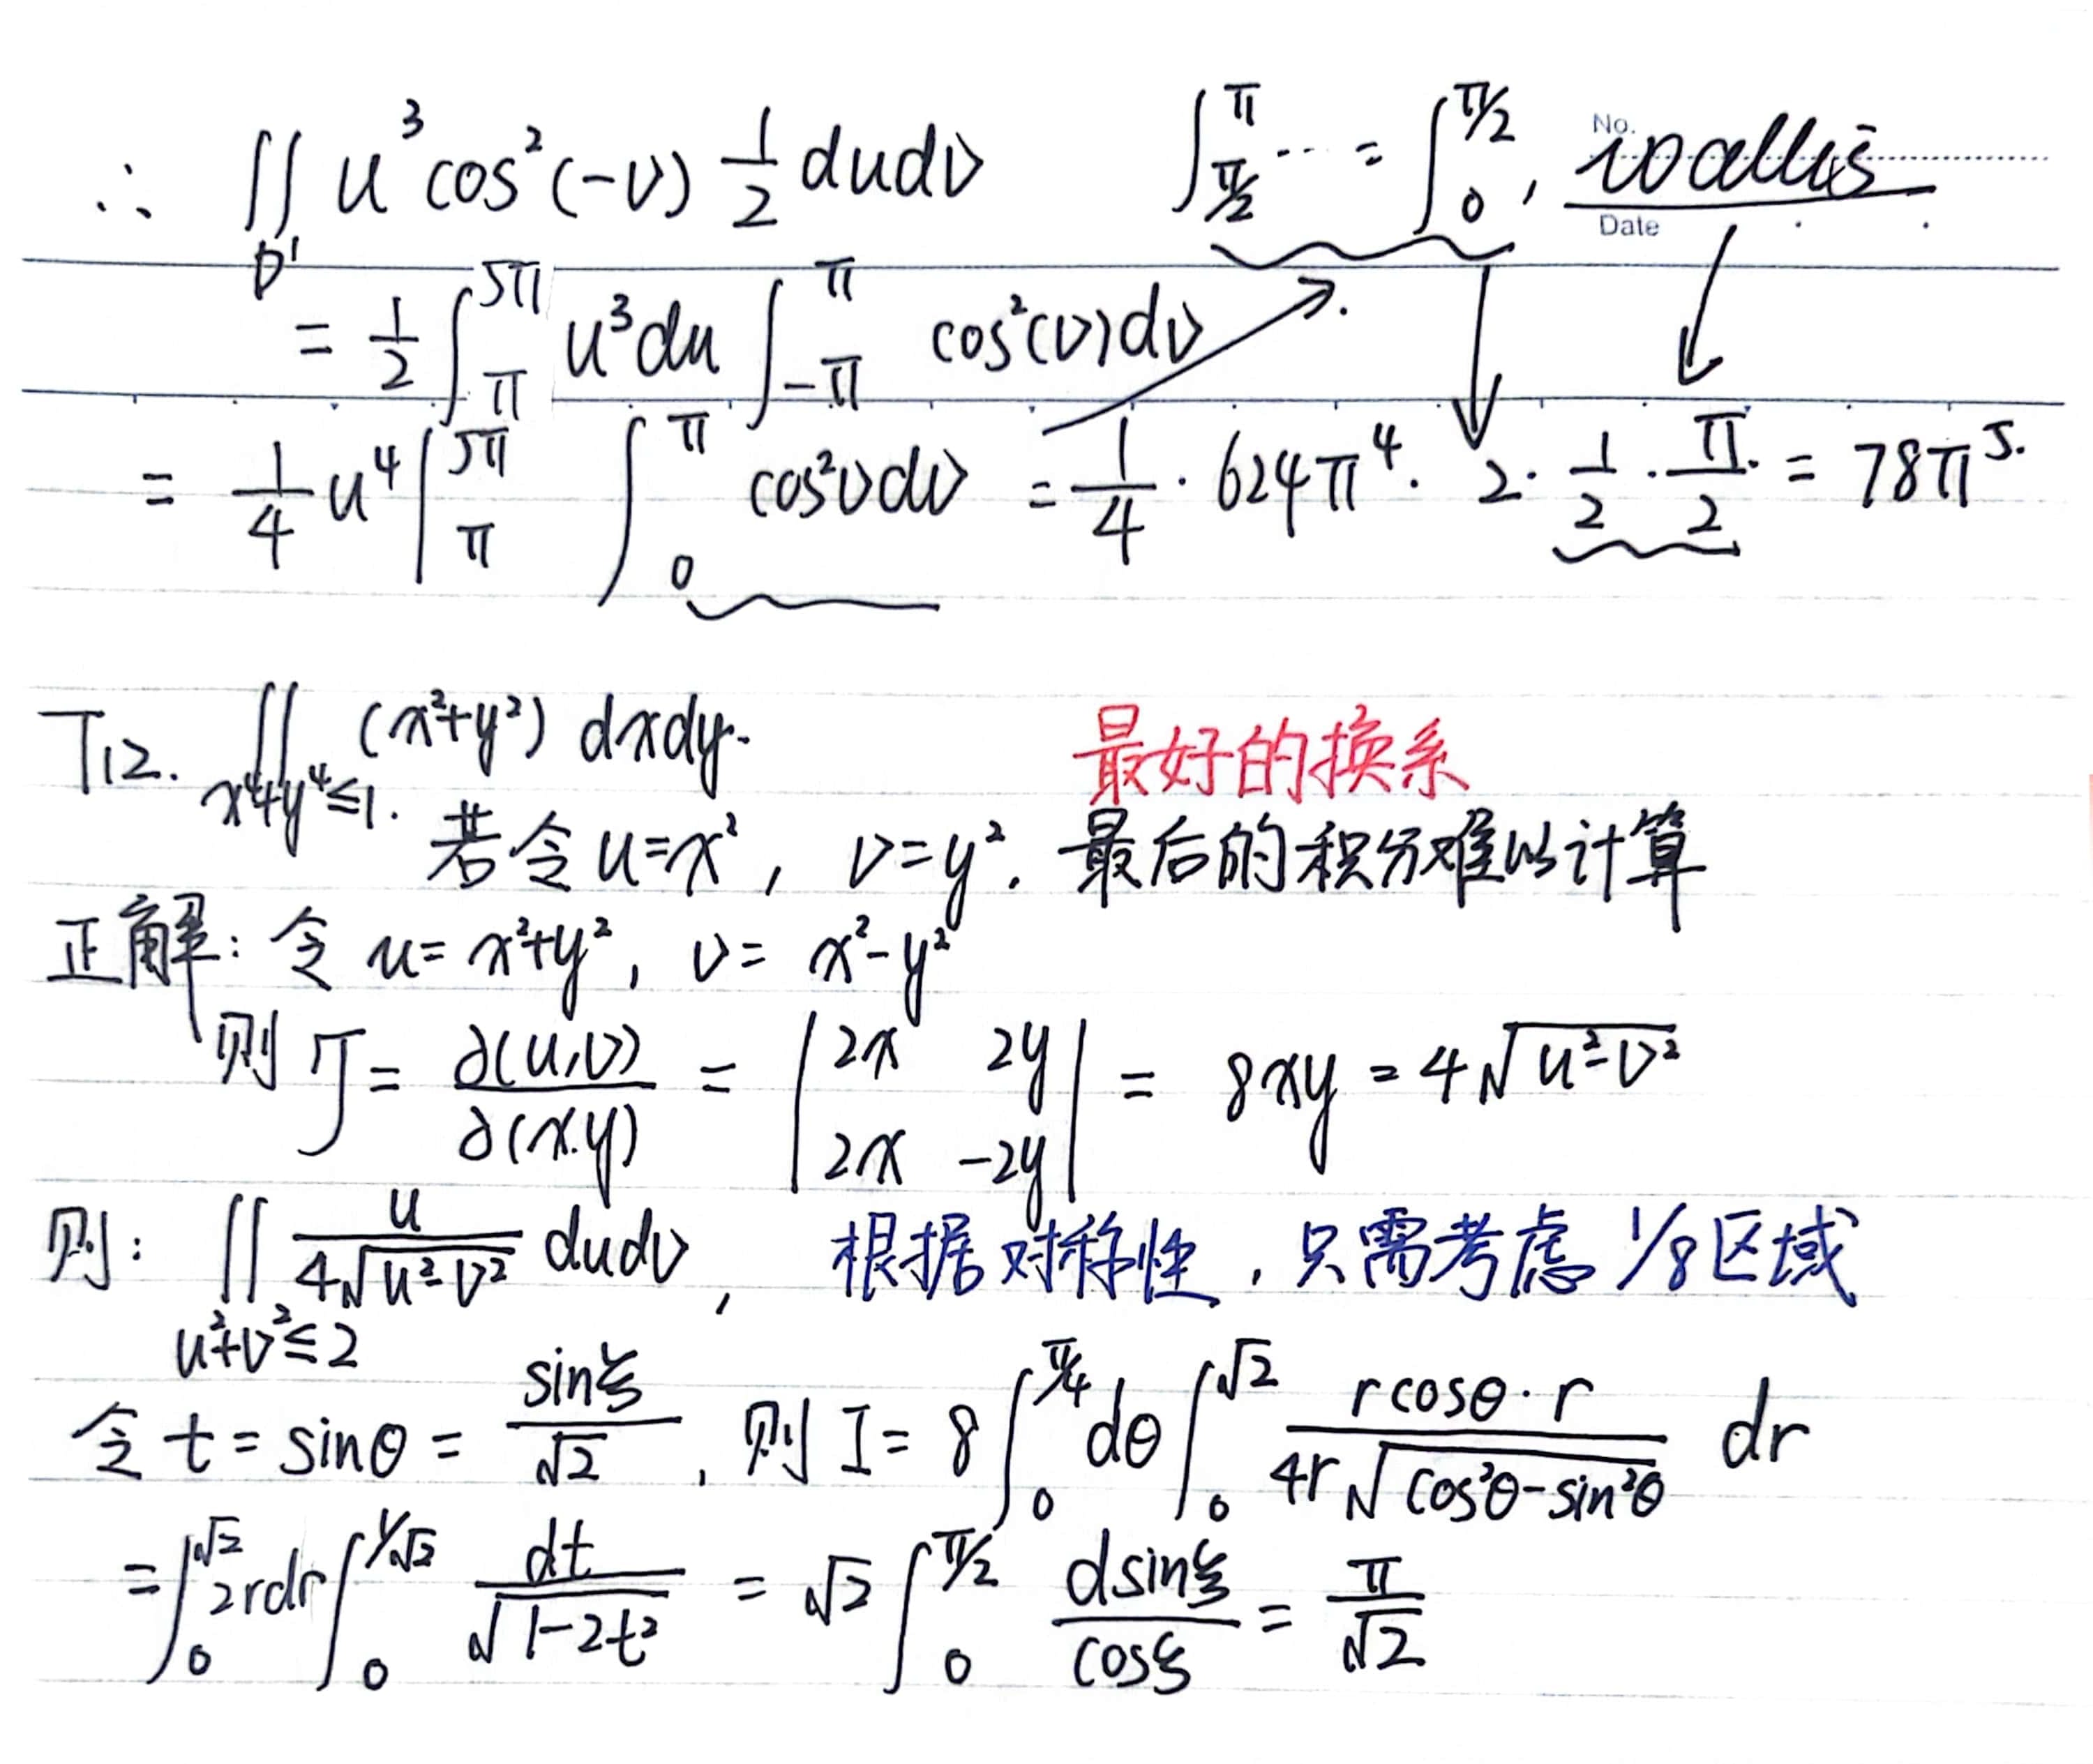 ∴ ∬_{D'} u³cos²(-v) 1/2 dudv   ∫_{π/2}^{π} ... = ∫_0^{π/2}, wallis
No.
Date
= 1/2 ∫_π^{5π} u³du ∫_{-π}^{π} cos²(v)dv
= 1/4 u⁴|_π^{5π} ∫_0^π cos²vdv = 1/4 · 624π⁴ · 2 · 1/2 · π/2 = 78π⁵.
T12. ∬_{x⁴+y⁴≤1} (x²+y²) dxdy.   最好的换系
若令 u=x², v=y². 最后的积分难以计算
正解: 令 u=x²+y², v=x²-y²
则 J = ∂(u,v)/∂(x,y) = |2x 2y; 2x -2y| = 8xy = 4√(u²-v²)
则: ∬_{u²+v²≤2} u/(4√(u²-v²)) dudv, 根据对称性, 只需考虑 1/8 区域
令 t = sinθ = sinξ/√2, 则 I = 8∫_0^{π/4} dθ ∫_0^{√2} (rcosθ·r)/(4r√(cos²θ-sin²θ)) dr
= ∫_0^{√2} 2rdr ∫_0^{1/√2} dt/√(1-2t²) = √2 ∫_0^{π/2} dsinξ/cosξ = π/√2